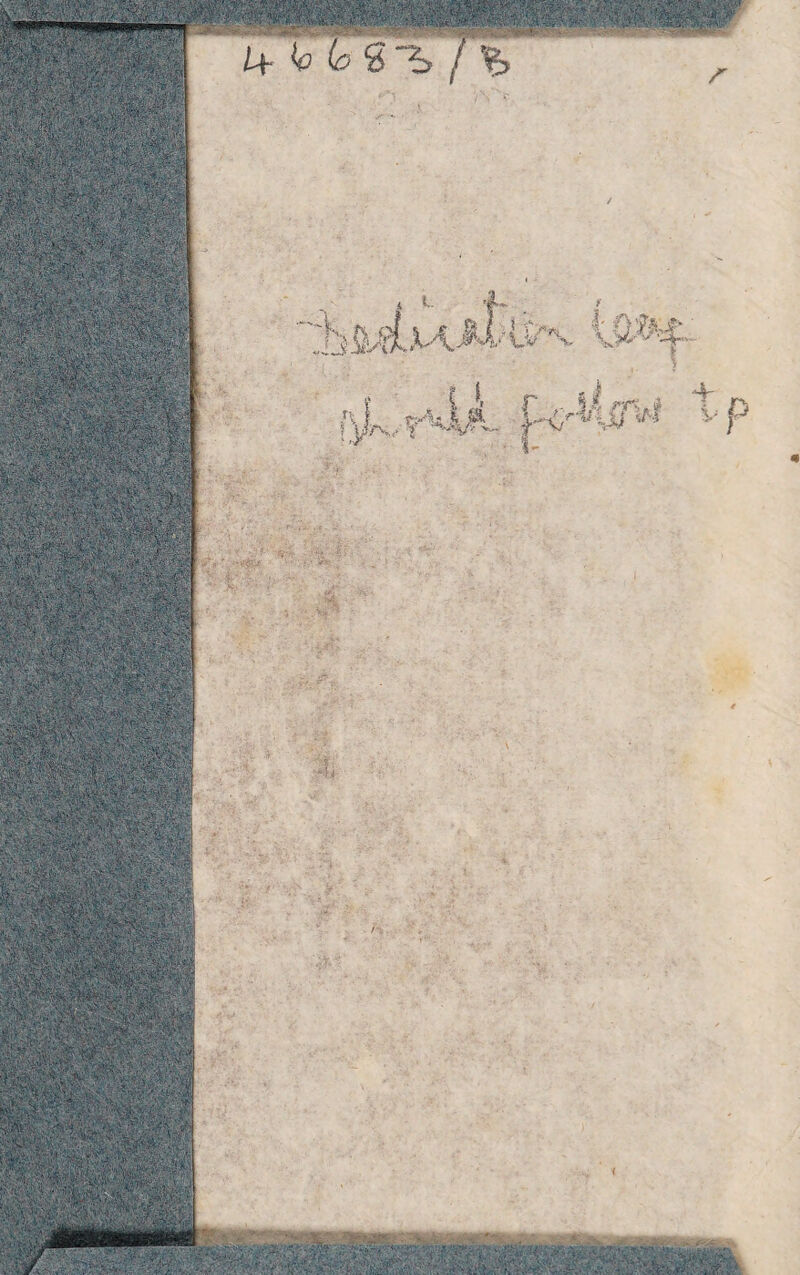 46683/B
Dedication leaf
should follow tp